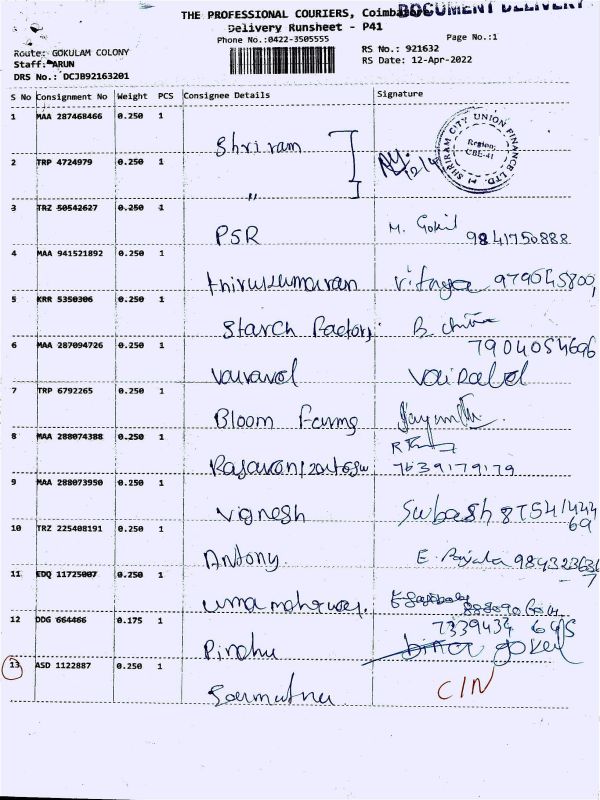 DOCUMENT DELIVERY
THE PROFESSIONAL COURIERS, Coimba
Delivery Runsheet - P41
Phone No.:0422-3505555
Page No.:1
Route: GOKULAM COLONY
RS No.: 921632
Staff: ARUN
RS Date: 12-Apr-2022
DRS No.: DCJB92163201
S No Consignment No Weight PCS Consignee Details Signature
1 MAA 287468466 0.250 1 Shriram
SHRIRAM CITY UNION FINANCE LTD.
Region:
CBE-41
2 TRP 4724979 0.250 1 "
12/4
3 TRZ 50542627 0.250 1 PSR M. Gokil 9841750888
4 MAA 941521892 0.250 1 thirukumaran
5 KRR 5350306 0.250 1 Starch Factory B. chitra
7904054696
6 MAA 287094726 0.250 1
7 TRP 6792265 0.250 1 Bloom Farms
8 MAA 288074388 0.250 1
7639179179
9 MAA 288073950 0.250 1 Vignesh Subash 87541444
69
10 TRZ 225408191 0.250 1 Antony E.
11 EDQ 11725007 0.250 1
12 DDG 664466 0.175 1
13 ASD 1122887 0.250 1 CIN